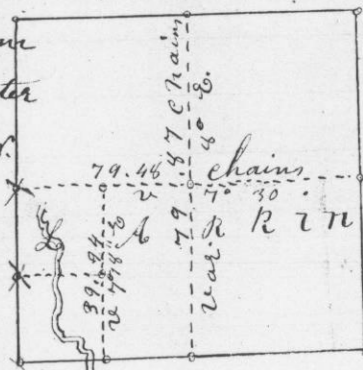 ter
79.48 chains
v 7° 30
79.87 Chains
Var. 8° E.
39.94
L A R K I N